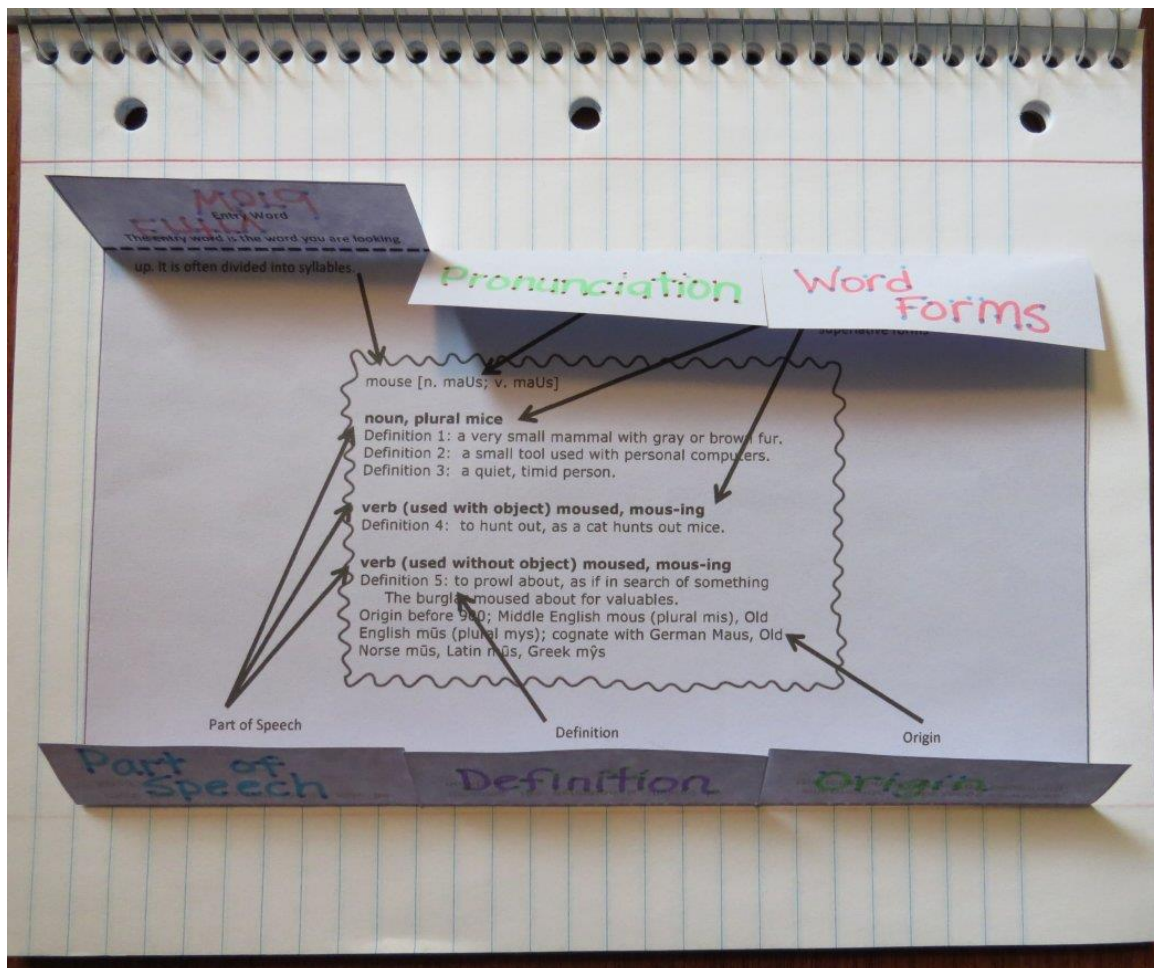 Entry Word
The entry word is the word you are looking
up. It is often divided into syllables.
Pronunciation
Word
Forms
superlative forms
mouse [n. maUs; v. maUs]
noun, plural mice
Definition 1: a very small mammal with gray or brown fur.
Definition 2: a small tool used with personal computers.
Definition 3: a quiet, timid person.
verb (used with object) moused, mous-ing
Definition 4: to hunt out, as a cat hunts out mice.
verb (used without object) moused, mous-ing
Definition 5: to prowl about, as if in search of something
The burglar moused about for valuables.
Origin before 900; Middle English mous (plural mis), Old
English mūs (plural mys); cognate with German Maus, Old
Norse mūs, Latin mūs, Greek mŷs
Part of Speech
Definition
Origin
Part of
Speech
Definition
Origin